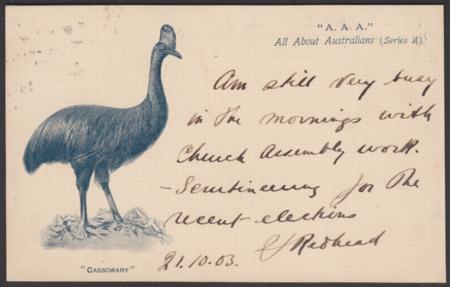 "A. A. A."
All About Australians (Series A).
Am still very busy
in the mornings with
Church Assembly work.
- Scrutineering for the
recent elections
Redhead
21.10.03.
"CASSOWARY"